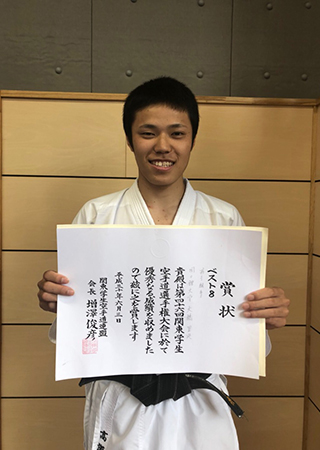 賞状
ベスト8
貴殿は第四六回関東学生
空手道選手権大会に於て
優秀なる成績を収めました
ので茲に之を賞します
平成三十年六月三日
関東学生空手道連盟
会長 増澤俊彦